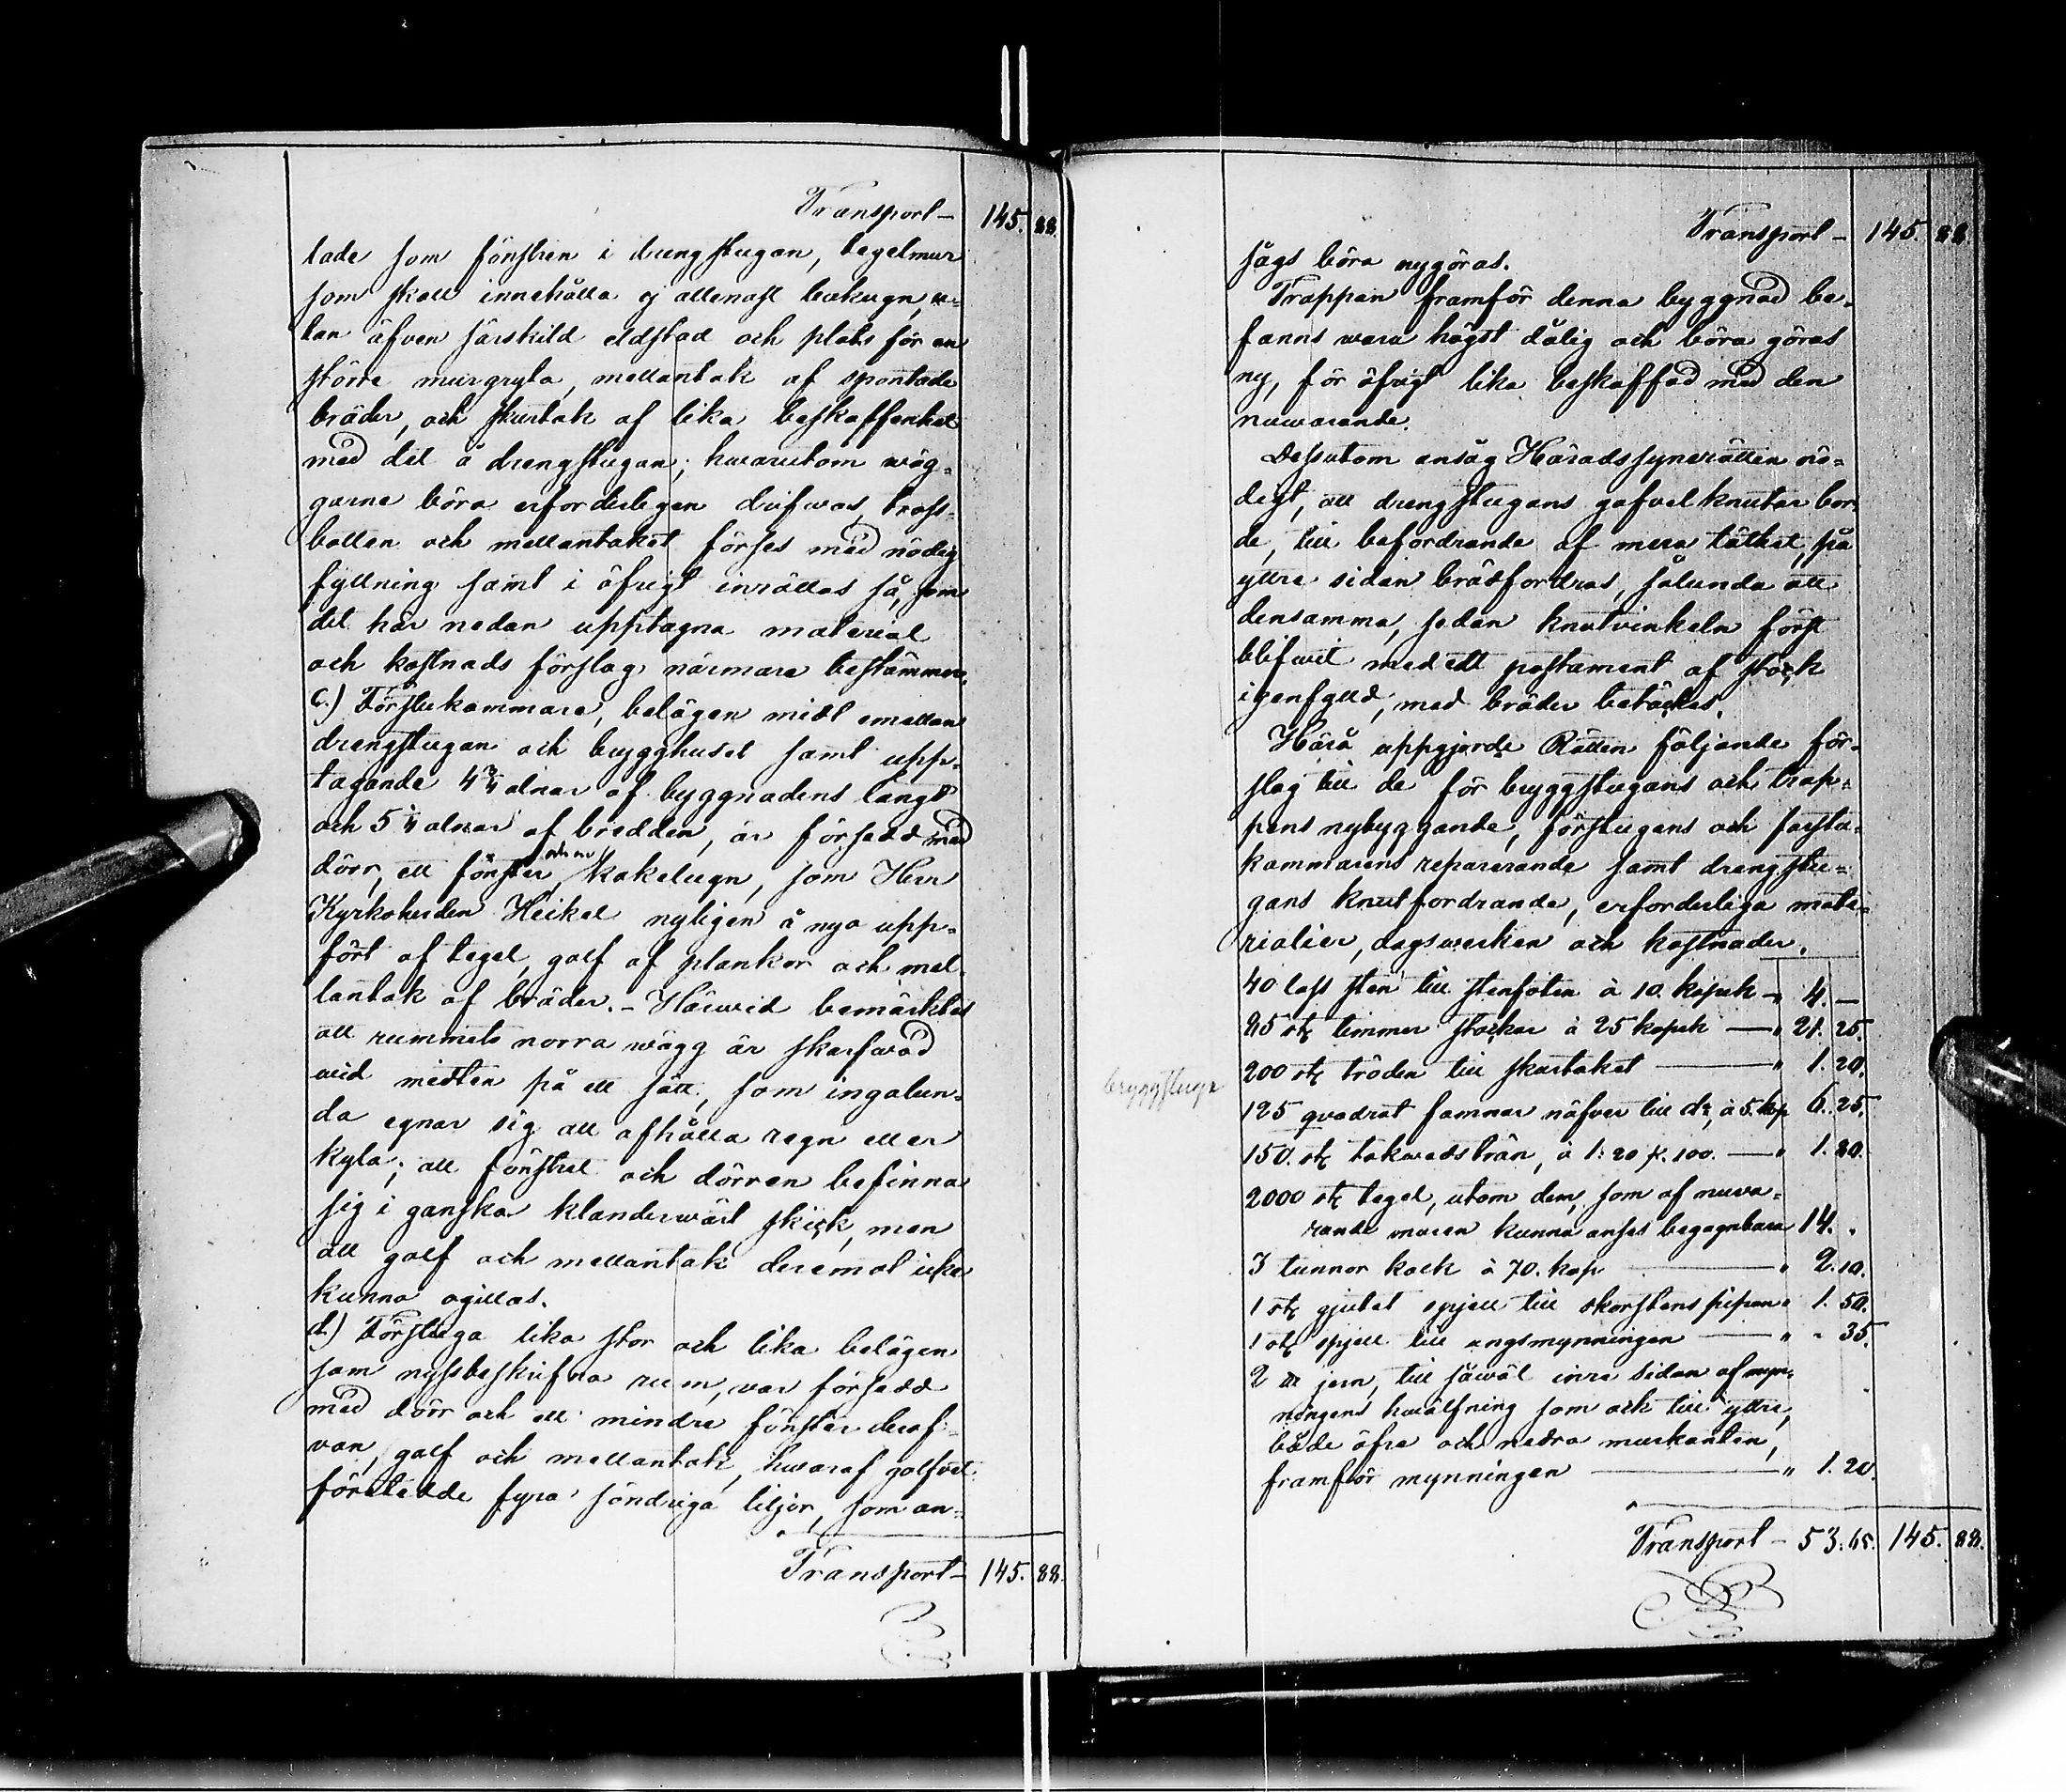 Transport - 145. 88.
tade som fönstren i drengstugan, tegelmur
som skall innehålla ej allenast bakugn, u-
tan äfven särskild eldstad och plats för en
större murgryta, mellantak af spontade
bräder, och skurtak af lika beskaffenhet
med det å drengstugan; hwarutom wäg-
garne böra erforderligen drifwas, tross-
botten och mellantaket förses med nödig
fyllning samt i öfrigt inrättas så, som
det här nedan upptagna material
och kostnads förslag närmare bestämmer.
c.) Förstukammare, belägen midt emellan
drengstugan och brygghuset samt upp-
tagande 4 3/4 alnar af byggnadens längd
och 5 1/4 alnar af bredden, är försedd med
dörr, ett fönster, och en kakelugn, som Herr
Kyrkoherden Heikel nyligen å nyo upp-
fört af tegel, golf af plankor och mel-
lantak af bräder. - Härwid bemärktes
att rummets norra wägg är skarfwad
wid midten på ett sätt, som ingalun-
da egnar sig att afhålla regn eller
kyla; att fönstret och dörren befinna
sig i ganska klanderwärt skick, men
att golf och mellantak deremot icke
kunna ogillas.
d.) Förstuga lika stor och lika belägen
som nyssbeskrifna rum, war försedd
med dörr och ett mindre fönster deraf-
van, golf och mellantak, hwaraf golfvet
företedde fyra söndriga tiljor, som an-
Transport - 145. 88.
Transport - 145. 88
sågs böra nygöras.
Trappan framför denna byggnad be-
fanns wara högst dålig och böra göras
ny, för öfrigt lika beskaffad med den
nuwarande.
Dessutom ansåg Häradssynerätten nö-
digt, att drengstugans gafvelknutar bor-
de, till befordrande af mera täthet, på
yttre sidan brädfordras, sålunda att
densamma, sedan knutvinkeln först
blifwit med ett postament af stock
igenfylld, med bräder betäckes.
Härå uppgjorde Rätten följande för-
slag till de för bryggstugans och trap-
pens nybyggande, förstugans och förstu-
kammarens reparerande samt drengstu-
gans knutfordrande, erforderliga mate-
rialier, dagswerken och kostnader.
40 lass sten till stenfoten à 10. kopek - 4. -
85 st. timmer stockar à 25 kopek - " 21. 25.
200 st. tröden till skurtaket - " 1. 20.
bryggstuga
125 qvadrat famnar näfver till do, à 5. kop 6. 25.
150. st. takwedsträn, à 1: 20 p. 100. - " 1. 80.
2000 st. tegel, utom dem, som af nuva-
rande muren kunna anses begagnbara 14. "
3 tunnor kalk à 70. kop. - " 2. 10.
1 st. gjutet spjell till skorstens pipan " 1. 50.
1 st. spjell till ungsmynningen - " " 35.
2 jern, till såwäl inre sidan af myn-
ningens hwälfning som ock till yttre,
både öfre och nedra murkanten,
framför mynningen - " 1. 20.
Transport - 53. 65. 145. 88.